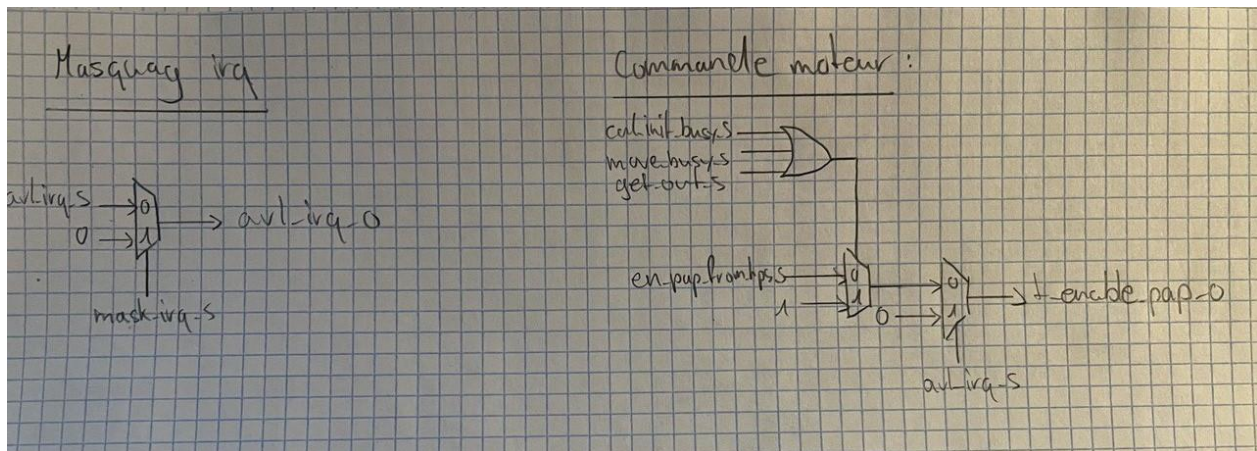 Masquag irq
avl_irq_s
0
0
1
avl_irq_o
mask_irq_s
Commande moteur :
cal_init_busy_s
move_busy_s
get_out_s
en_pap_from_hps_s
1
0
1
0
0
1
t_enable_pap_o
avl_irq_s